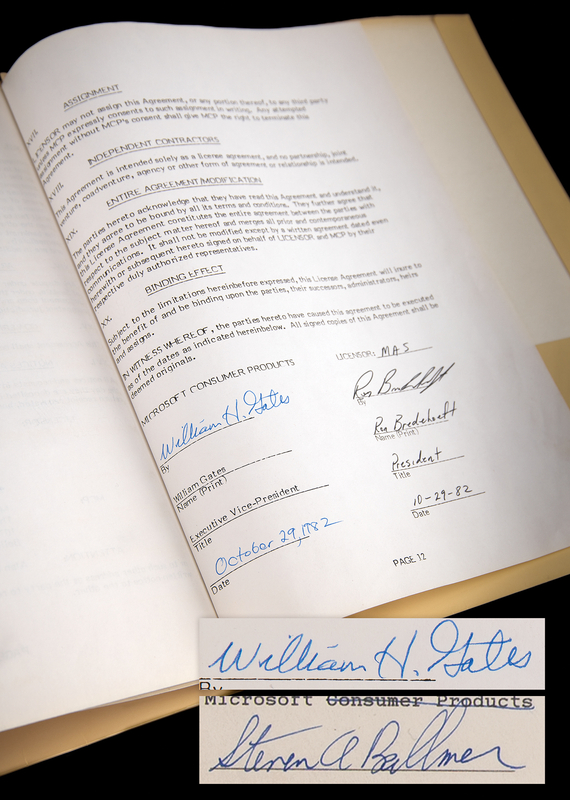 XVII. ASSIGNMENT
LICENSOR may not assign this Agreement, or any portion thereof, to any third party
unless MCP expressly consents to such assignment in writing. Any attempted
assignment without MCP's consent shall give MCP the right to terminate this
Agreement.
XVIII. INDEPENDENT CONTRACTORS
This Agreement is intended solely as a license agreement, and no partnership, joint
venture, coadventure, agency or other form of agreement or relationship is intended.
XIX. ENTIRE AGREEMENT/MODIFICATION
The parties hereto acknowledge that they have read this Agreement and understand it,
and they agree to be bound by all its terms and conditions. They further agree that
this License Agreement constitutes the entire agreement between the parties with
respect to the subject matter hereof and merges all prior and contemporaneous
communications. It shall not be modified except by a written agreement dated even
herewith or subsequent hereto signed on behalf of LICENSOR and MCP by their
respective duly authorized representatives.
XX. BINDING EFFECT
Subject to the limitations hereinbefore expressed, this License Agreement will inure to
the benefit of and be binding upon the parties, their successors, administrators, heirs
and assigns.
IN WITNESS WHEREOF, the parties hereto have caused this agreement to be executed
as of the dates as indicated hereinbelow. All signed copies of this Agreement shall be
deemed originals.
MICROSOFT CONSUMER PRODUCTS
William H. Gates
By
William Gates
Name (Print)
Executive Vice-President
Title
October 29, 1982
Date
LICENSOR: MAS
Ron Bredehoeft
By
Ron Bredehoeft
Name (Print)
President
Title
10-29-82
Date
PAGE 12
William H. Gates
By
Microsoft Consumer Products
Steven A Ballmer